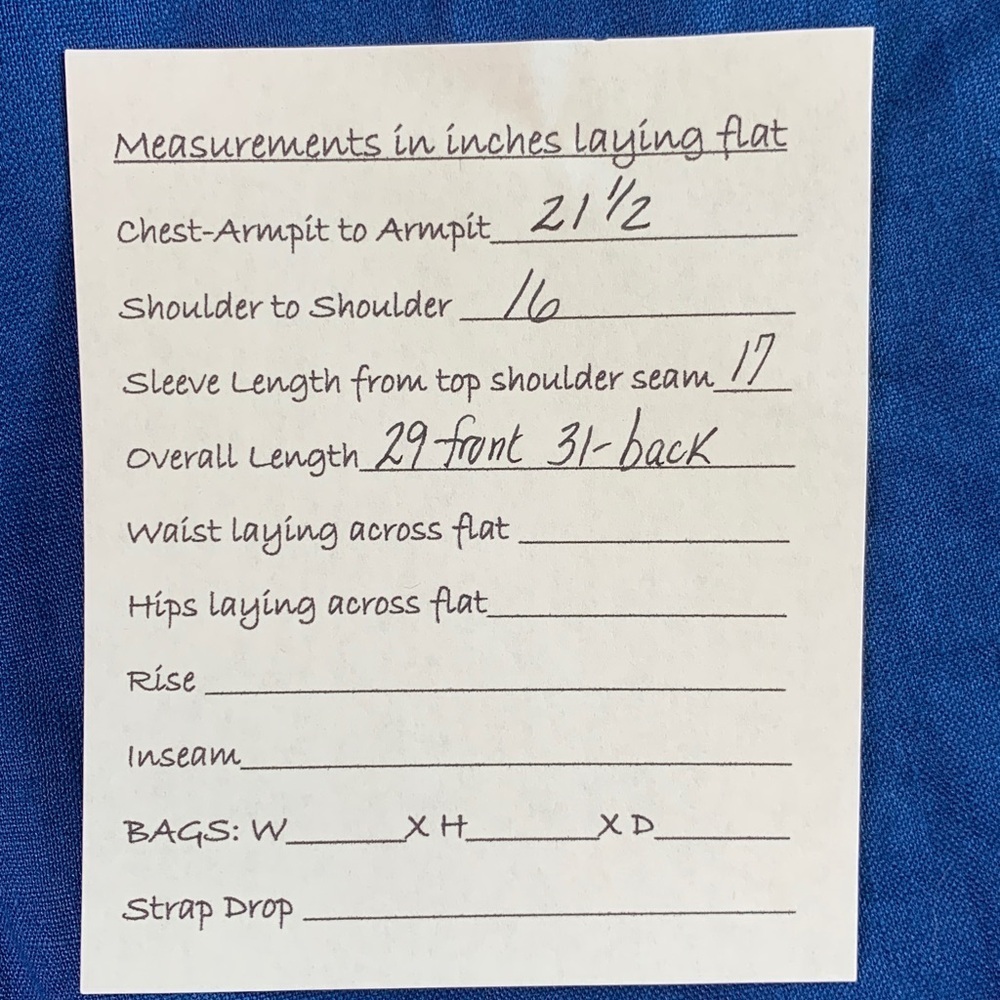 Measurements in inches laying flat
Chest-Armpit to Armpit 21 1/2
Shoulder to Shoulder 16
Sleeve Length from top shoulder seam 17
Overall Length 29-front 31-back
Waist laying across flat
Hips laying across flat
Rise
Inseam
BAGS: W______X H______X D______
Strap Drop